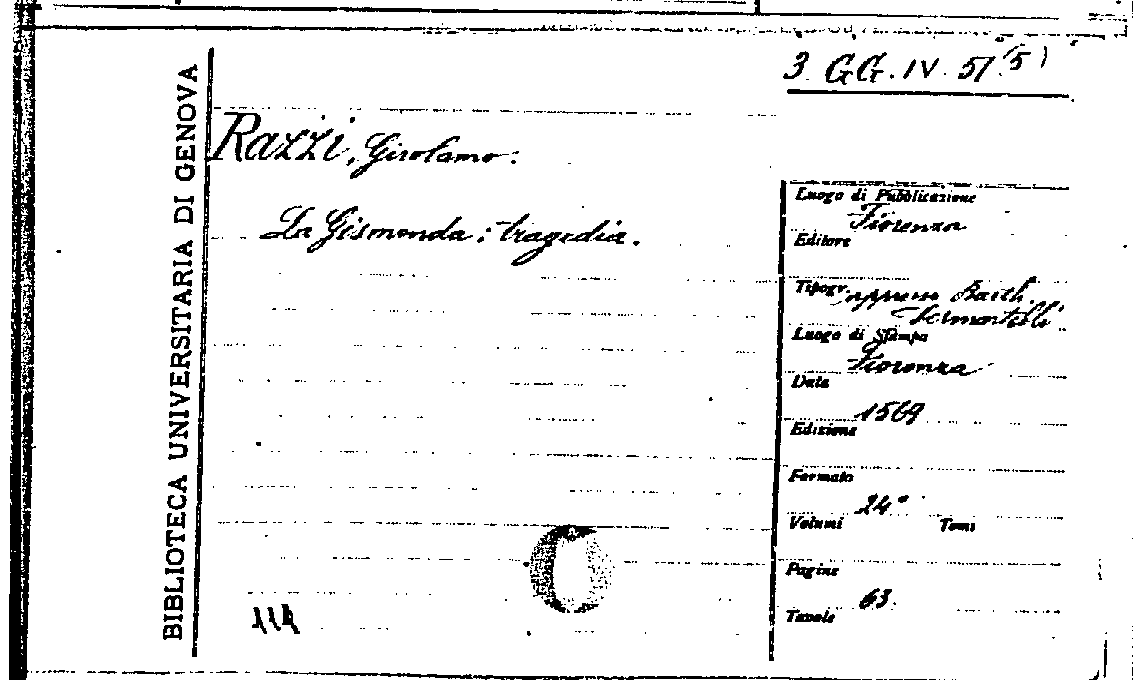 3 GG. IV. 51 (5)
BIBLIOTECA UNIVERSITARIA DI GENOVA
Razzi, Girolamo.
La Gismonda: tragedia.
Luogo di Pubblicazione
Fiorenza
Editore
Tipogr. appresso Barth.
Sermartelli
Luogo di Stampa
Fiorenza
Data
1569
Edizione
Formato
24°
Volumi Tomi
Pagine
63
Tavole
114